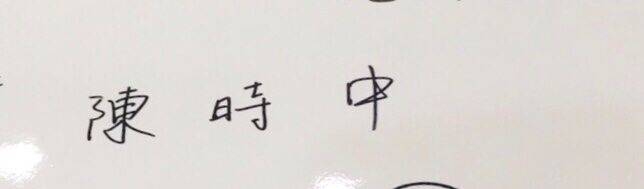 陳時中